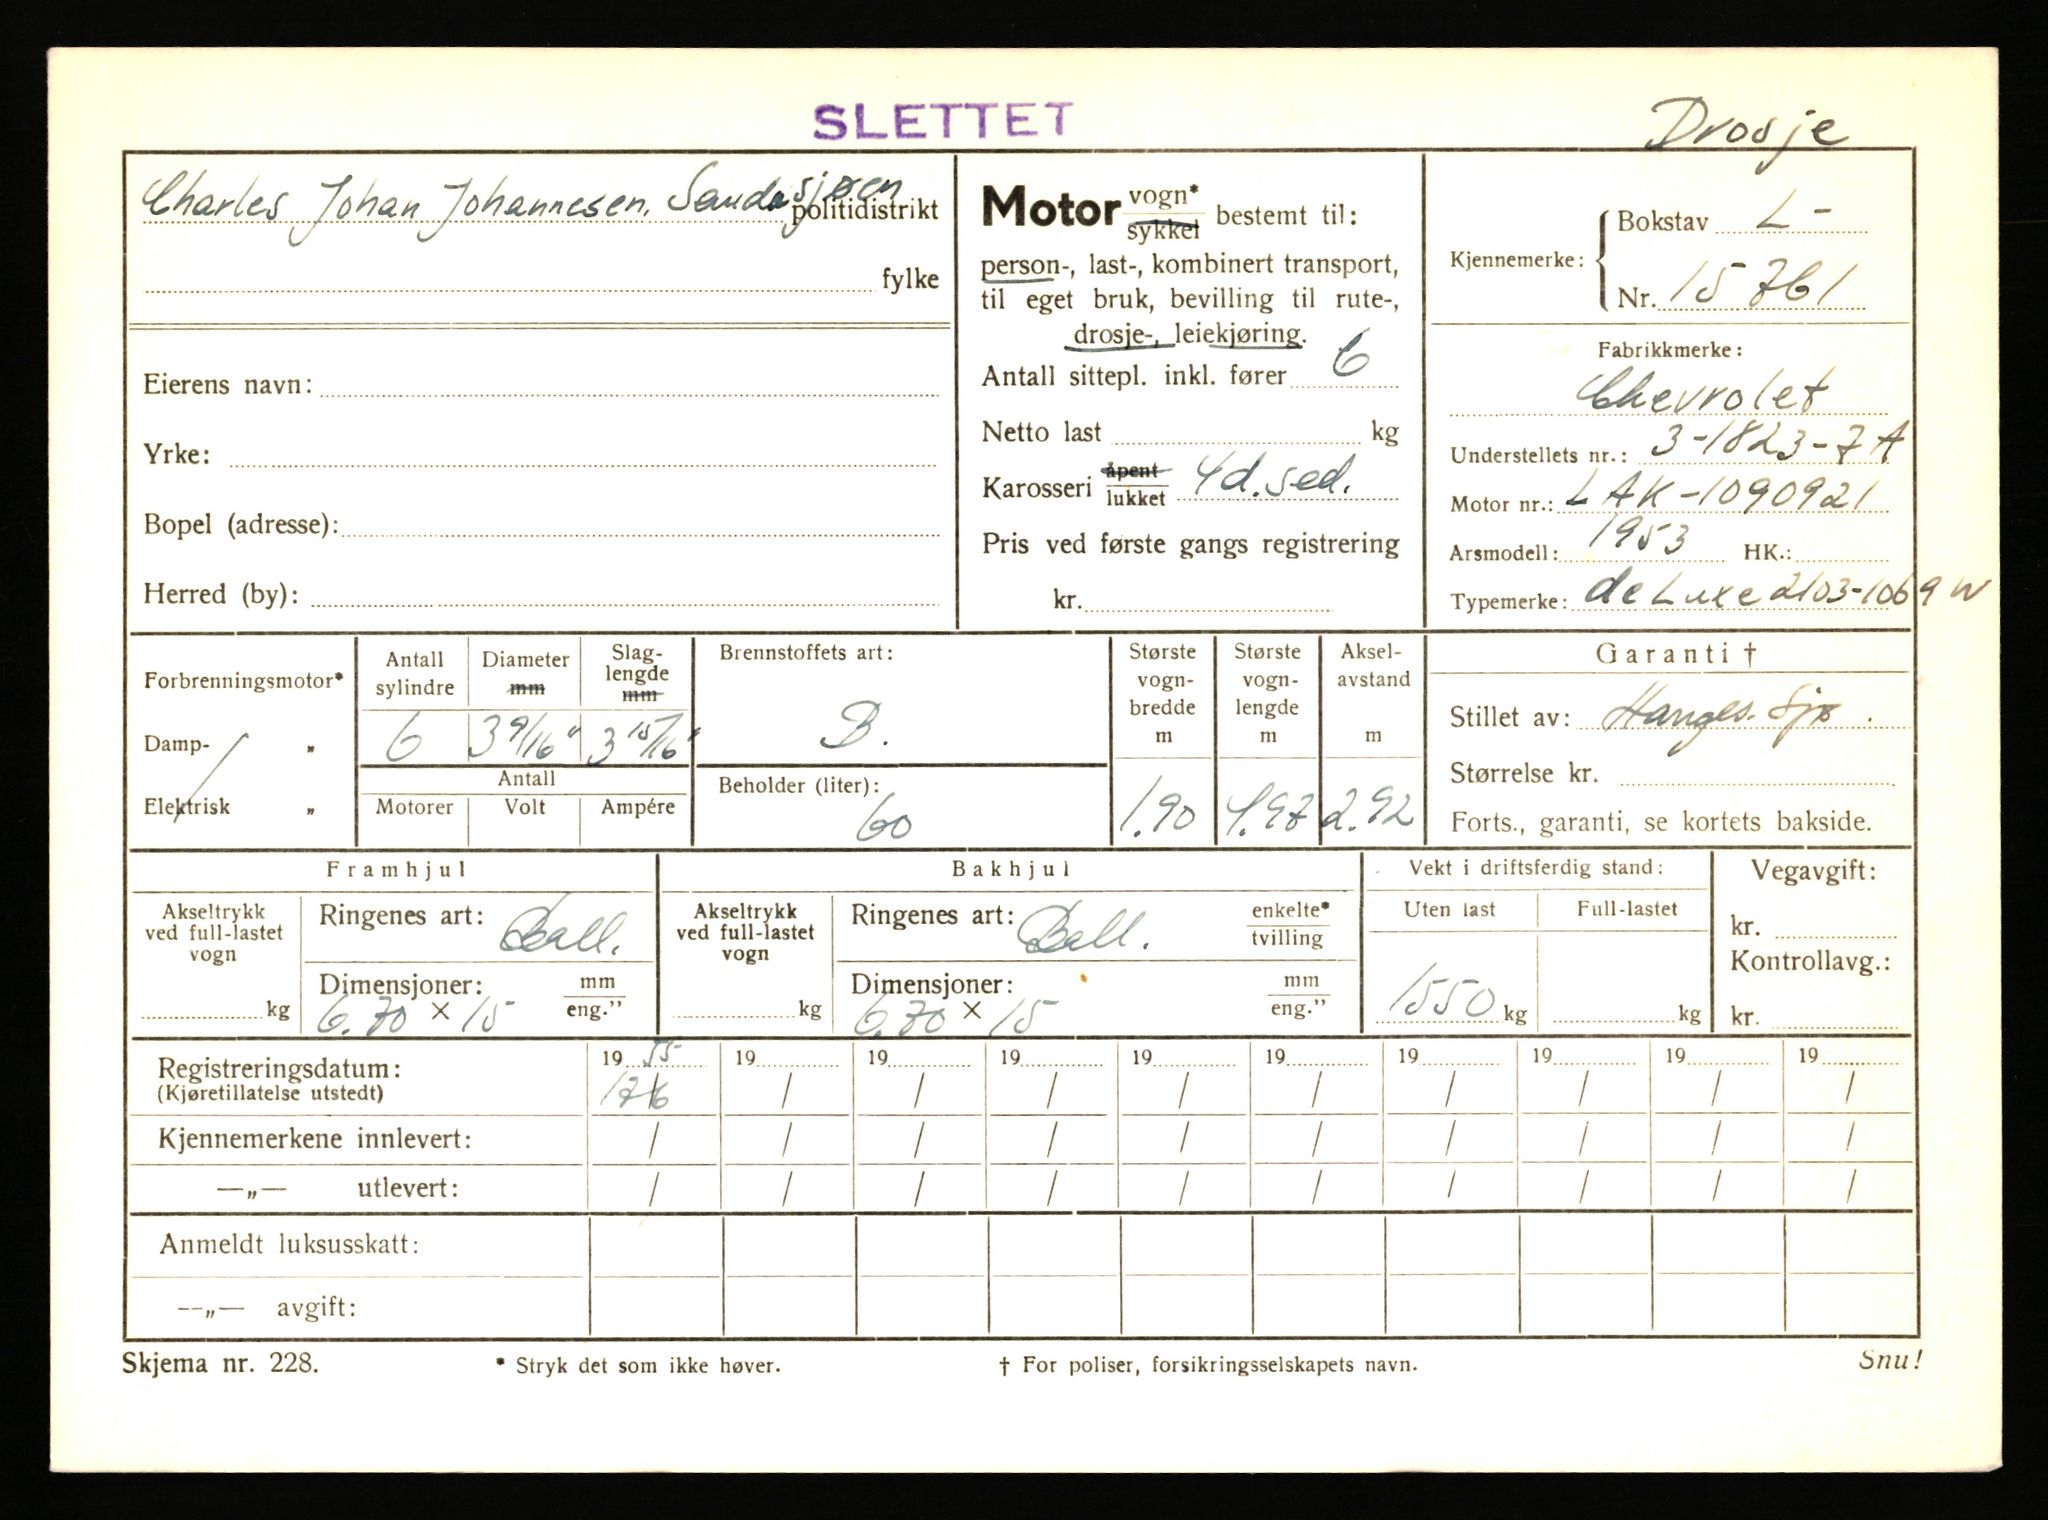 SLETTET
Drosje
Charles Johan Johannesen, Sandasjøen
politidistrikt
fylke
Eierens navn:
Yrke:
Bopel (adresse):
Herred (by):
Motor vogn* sykkel bestemt til:
person-, last-, kombinert transport,
til eget bruk, bevilling til rute-,
drosje-, leiekjøring.
Antall sittepl. inkl. fører 6
Netto last kg
Karosseri åpent lukket 4d. sed.
Pris ved første gangs registrering
kr.
Kjennemerke: Bokstav L-
Nr. 15761
Fabrikkmerke:
Chevrolet
Understellets nr.: 3-1823-7A
Motor nr.: LAK-1090921
Arsmodell: 1953 HK.:
Typemerke: de Luxe 2103-1069 W
Forbrenningsmotor*
Damp- „
Elektrisk „
Antall sylindre Diameter mm Slag-lengde mm
6 3 9/16" 3 15/16"
Antall
Motorer Volt Ampére
Brennstoffets art:
B.
Beholder (liter):
60
Største vogn-bredde m
1.90
Største vogn-lengde m
4.97
Aksel-avstand m
2.92
Garanti †
Stillet av:
Størrelse kr.
Forts., garanti, se kortets bakside.
Framhjul
Akseltrykk ved full-lastet vogn
kg
Ringenes art: Ball.
Dimensjoner: mm eng.”
6.70 × 15
Bakhjul
Akseltrykk ved full-lastet vogn
kg
Ringenes art: Ball. enkelte* tvilling
Dimensjoner: mm eng.”
6.70 × 15
Vekt i driftsferdig stand:
Uten last Full-lastet
1550 kg kg
Vegavgift:
kr.
Kontrollavg.:
kr.
Registreringsdatum: 19 55 19 19 19 19 19 19 19 19 19
(Kjøretillatelse utstedt) 17/6 / / / / / / / / /
Kjennemerkene innlevert: / / / / / / / / / /
—„— utlevert: / / / / / / / / / /
Anmeldt luksusskatt:
—„— avgift:
Skjema nr. 228. * Stryk det som ikke høver. † For poliser, forsikringsselskapets navn. Snu!